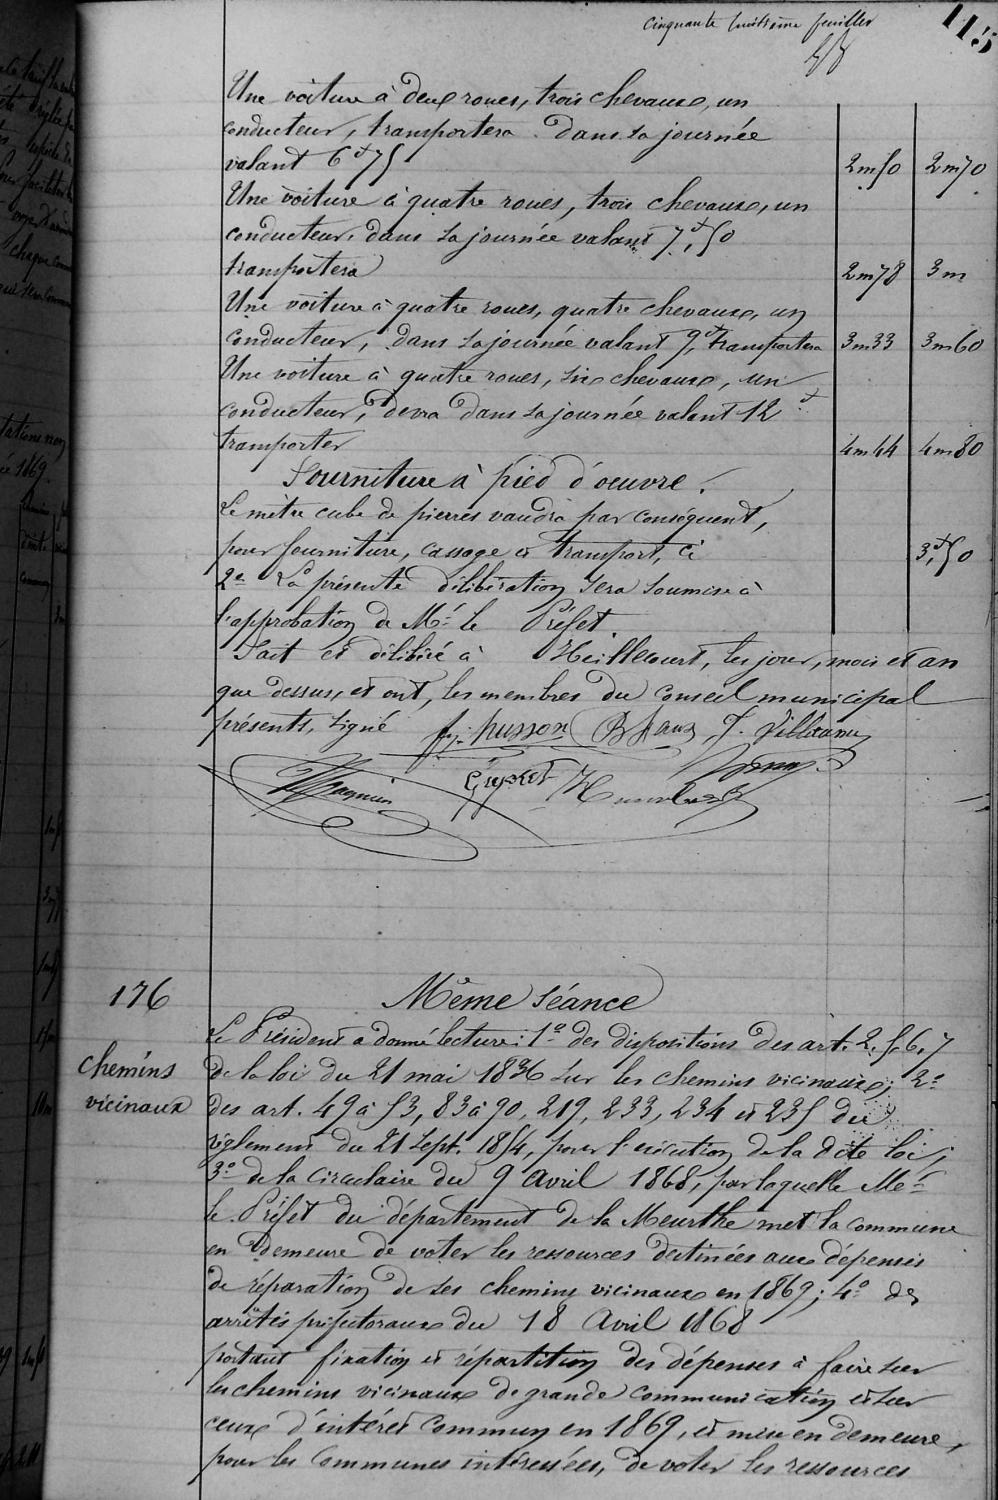 Cinquante huitième feuillet
115
58
Une voiture à deux roues, trois chevaux, un
conducteur, transportera dans sa journée
valant 6f75 2m50 2m70
Une voiture à quatre roues, trois chevaux, un
conducteur, dans sa journée valant 7f,50
transportera 2m78 3m
Une voiture à quatre roues, quatre chevaux, un
conducteur, dans sa journée valant 9f, transportera 3m33 3m60
Une voiture à quatre roues, six chevaux, un
conducteur, devra dans sa journée valant 12f
transporter 4m44 4m80
Fourniture à pied d'oeuvre.
Le mètre cube de pierres vaudra par conséquent,
pour fourniture, cassage et transport, ci 3f,50
2o La présente délibération sera soumise à
l'approbation de Mr le Préfet
Fait et délibéré à Heillecourt, les jour, mois et an
que dessus, et ont, les membres du conseil municipal
présents, signé husson
176
Même séance
Chemins
vicinaux
Le Président a donné lecture: 1o des dispositions des art. 2, 5, 6, 7
de la loi du 21 mai 1836 sur les chemins vicinaux; 2o
des art. 49 à 53, 83 à 90, 219, 233, 234 et 235 du
règlement du 21 Sept. 1854, pour l'exécution de la dite loi;
3o de la circulaire du 9 Avril 1868, par laquelle Mr
le Préfet du département de la Meurthe met la commune
en demeure de voter les ressources destinées aux dépenses
de réparation de ses chemins vicinaux en 1869; 4o des
arrêtés préfectoraux du 18 Avril 1868
portant fixation et répartition des dépenses à faire sur
les chemins vicinaux de grande communication et sur
ceux d'intérêt commun en 1869, et mise en demeure,
pour les communes intéressées, de voter les ressources